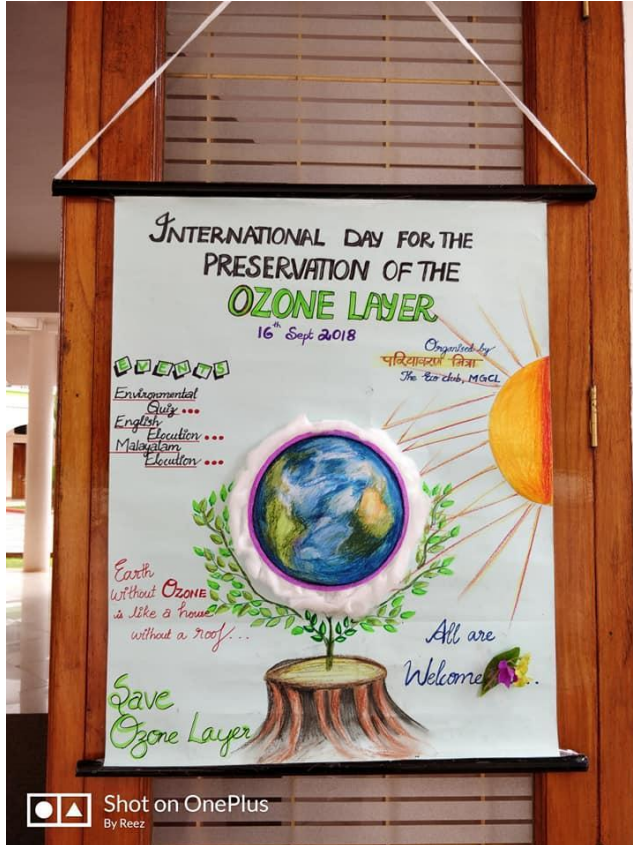 INTERNATIONAL DAY FOR THE
PRESERVATION OF THE
OZONE LAYER
16th Sept 2018
Organised by
परियावरण मित्रा
The Eco club, MGCL
EVENTS
Environmental
Quiz ...
English
Elocution ...
Malayalam
Elocution ...
Earth
without OZONE
is like a house
without a roof...
All are
Welcome ..
Save
Ozone Layer
Shot on OnePlus
By Reez